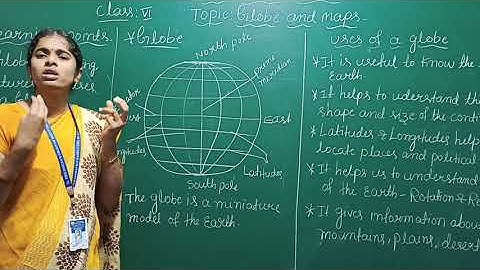 Class: VI
Topic: Globe and maps.
*Globe
North pole
Prime
Meridian
East
Latitudes
South pole
The globe is a miniature
model of the Earth.
Uses of a globe
*It is useful to know the
Earth.
*It helps to understand the
shape and size of the conti
*Latitudes & Longitudes help
locate places and political
*It helps us to understand
of the Earth - Rotation & Re
*It gives information abou
mountains, plains, desert